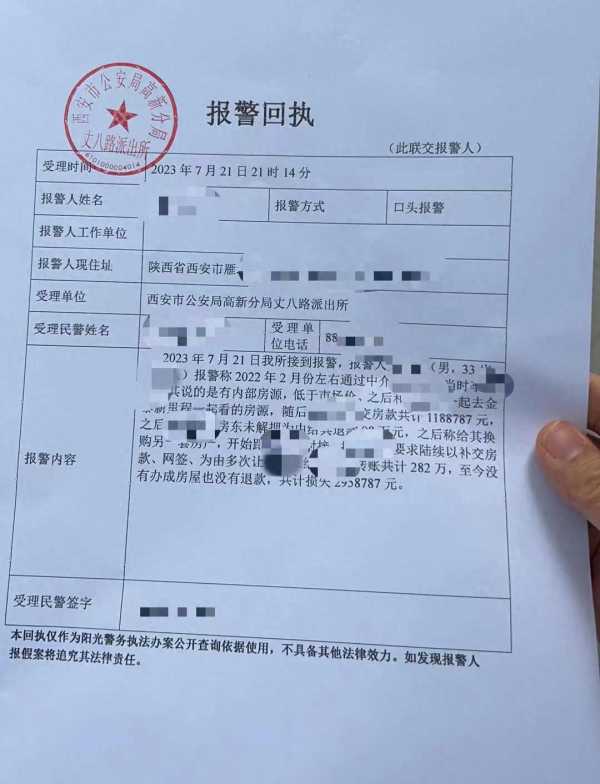 西安市公安局高新分局
丈八路派出所
6101000004014
报警回执
（此联交报警人）
受理时间 2023 年 7 月 21 日 21 时 14 分
报警人姓名 报警方式 口头报警
报警人工作单位
报警人现住址 陕西省西安市雁
受理单位 西安市公安局高新分局丈八路派出所
受理民警姓名 受理单位电话 88
报警内容
2023 年 7 月 21 日我所接到报警，报警人 （男，33
）报警称 2022 年 2 月份左右通过中介
其说的是有内部房源，低于市场价、之后和 一起去金
里程一起看的房源，随后 交房款共计 1188787 元，
之后 房东未解押为由给其退款 万元，之后称给其换
购另一套房产，开始 要求陆续以补交房
款、网签、为由多次让 转账共计 282 万，至今没
有办成房屋也没有退款，共计损失 2938787 元。
受理民警签字
本回执仅作为阳光警务执法办案公开查询依据使用，不具备其他法律效力。如发现报警人
报假案将追究其法律责任。